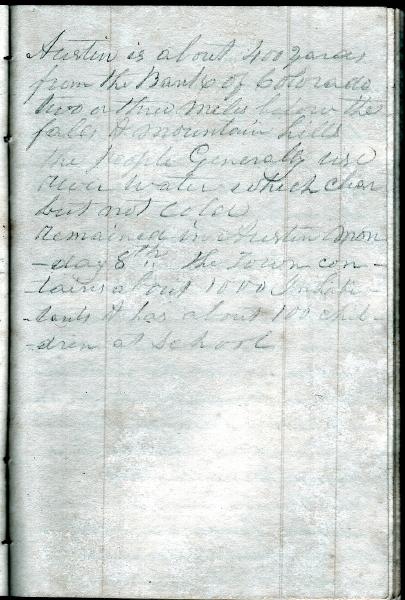 Austin is about 400 yards
from the Bank of Colorado
two or three miles below the
falls & mountain hills
the people Generally use
river water which clear
but not cold
remained in Austin Mon
-day 8th the Town con-
-tains about 1000 Inhabi-
-tants it has about 100 chil-
-dren at School